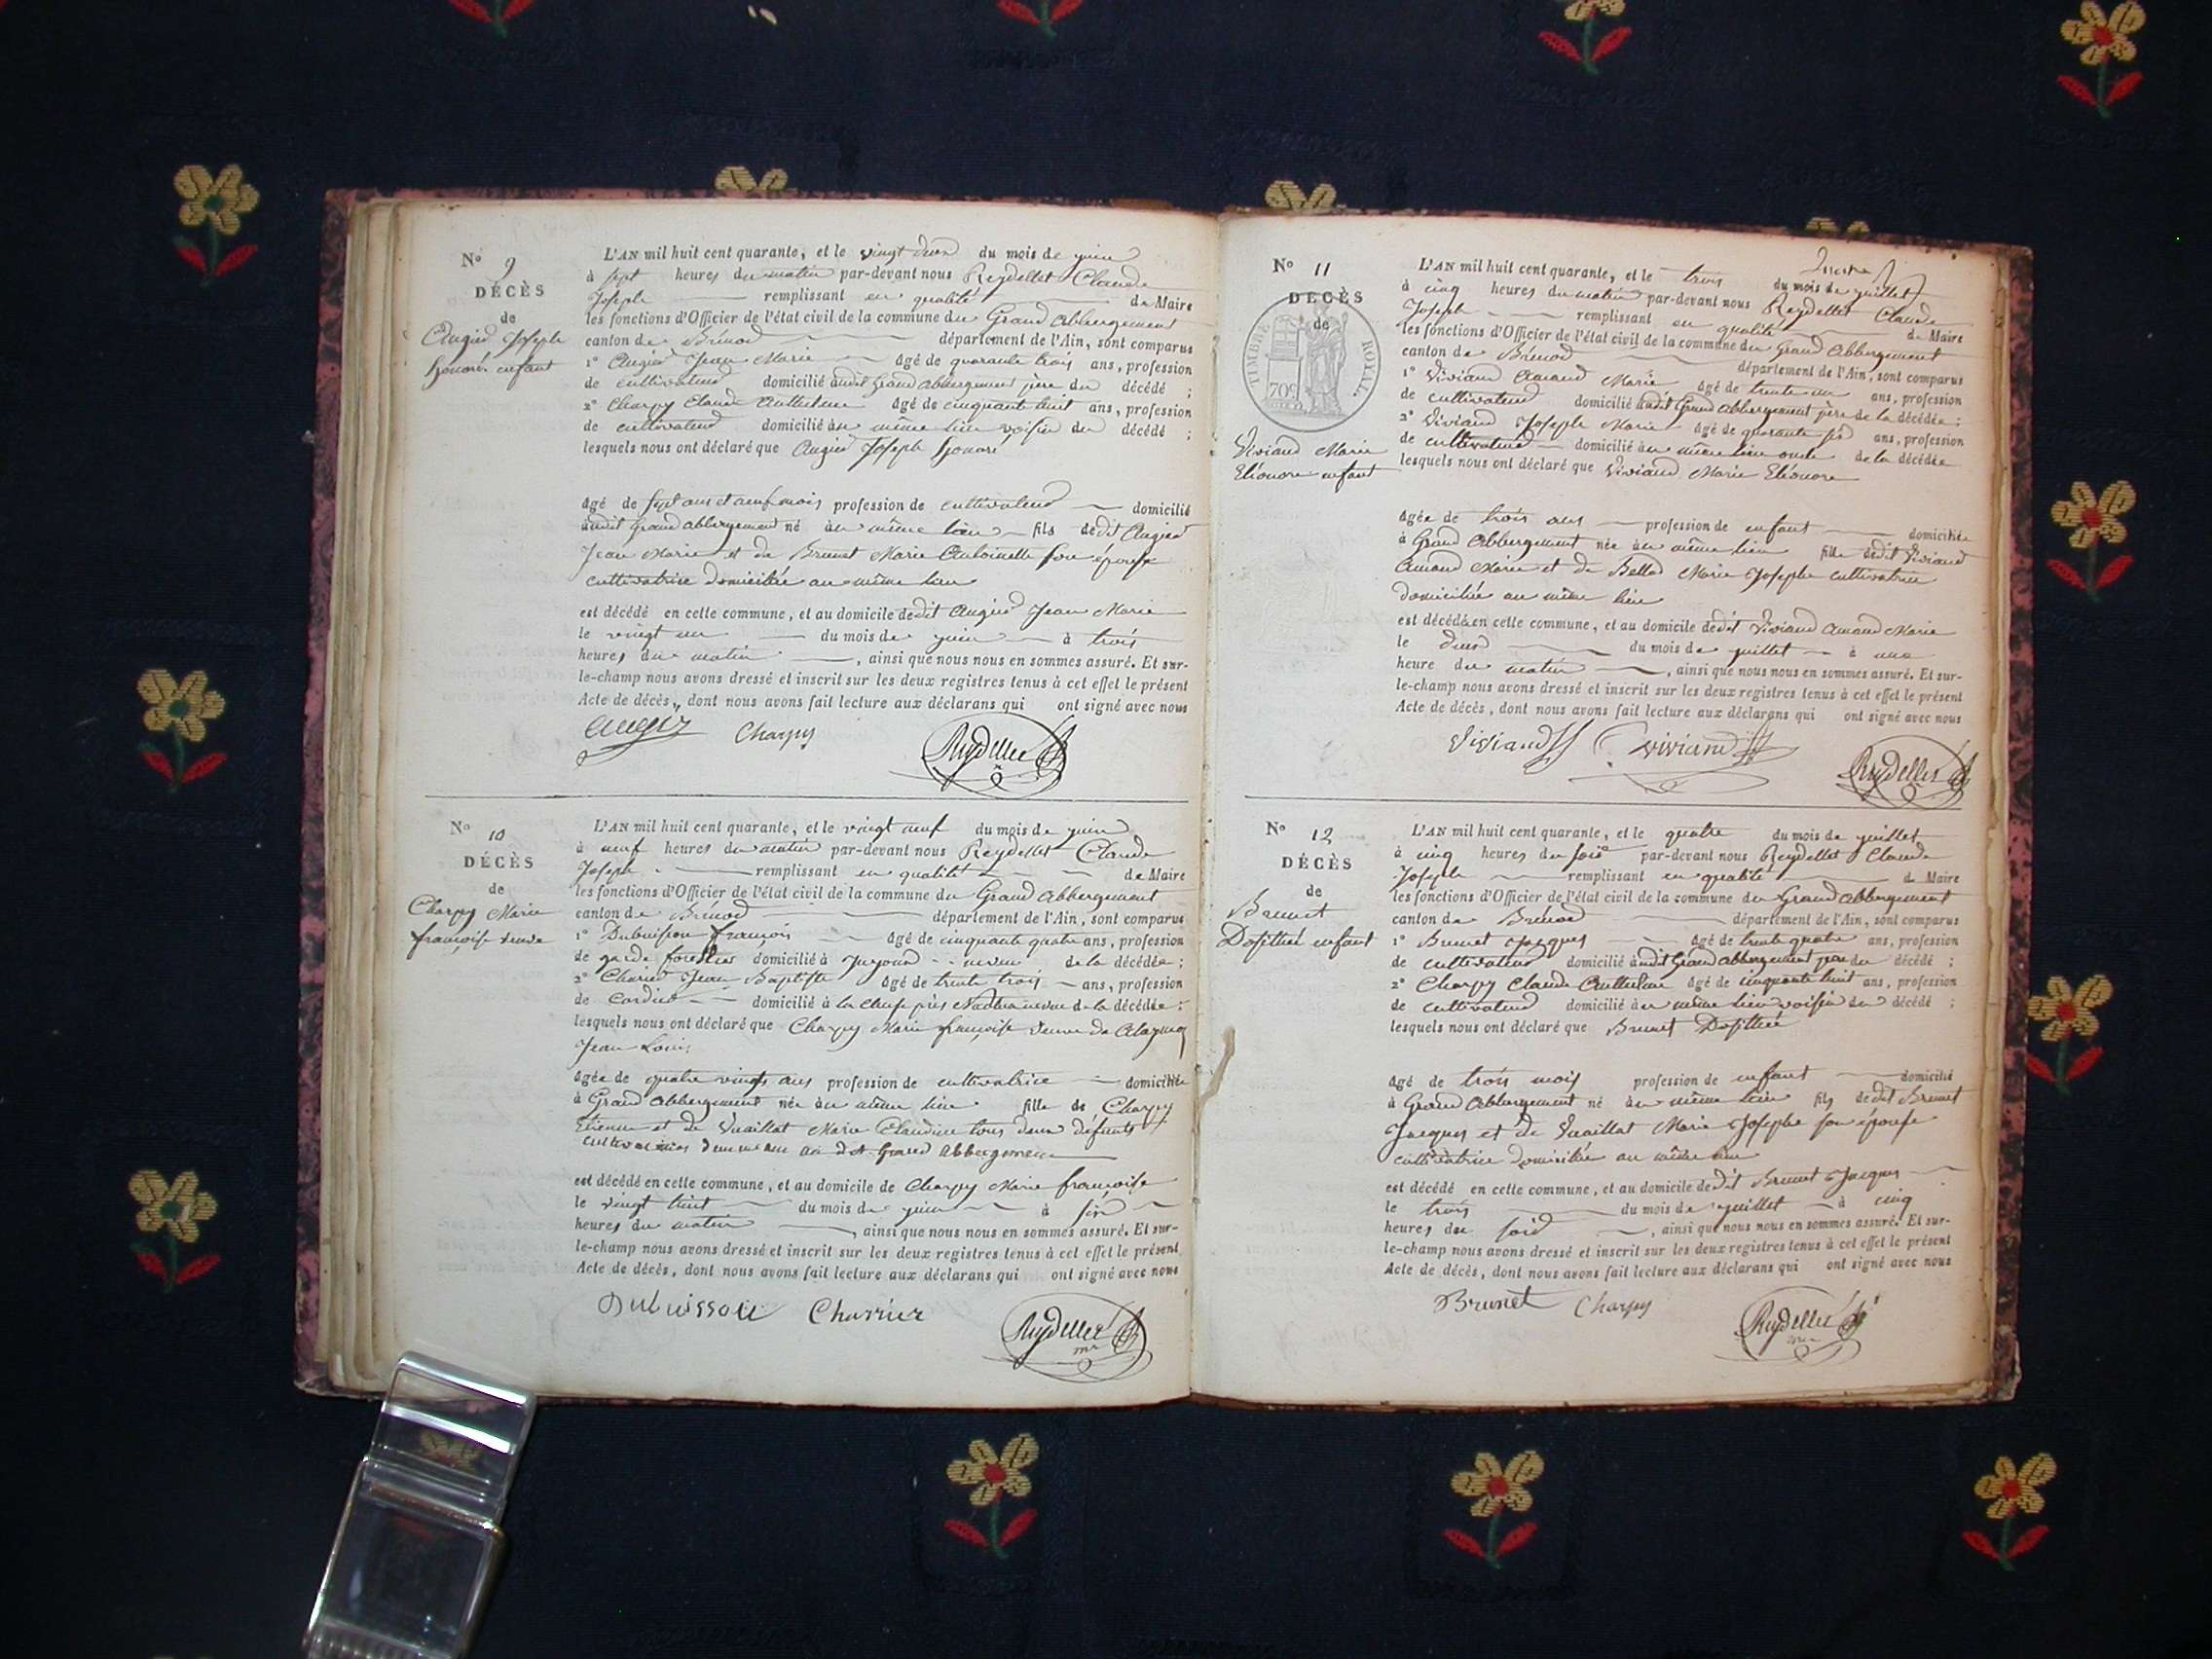 N° 9
DÉCÈS
de
Augier Joseph
honoré enfant
L'AN mil huit cent quarante, et le vingt deux du mois de juin
à sept heures du matin par-devant nous Reydellet Claude
Joseph remplissant en qualité de Maire
les fonctions d'Officier de l'état civil de la commune du Grand abbergement
canton de Brénod département de l'Ain, sont comparus
1° Augier Jean Marie âgé de quarante trois ans, profession
de cultivateur domicilié audit Grand abbergement père du décédé ;
2° Charpy Claude Anthelme âgé de cinquante huit ans, profession
de cultivateur domicilié au même lieu voisin du décédé ;
lesquels nous ont déclaré que Augier Joseph honoré
âgé de sept ans et neuf mois profession de cultivateur domicilié
audit Grand abbergement né au même lieu fils dudit Augier
Jean Marie et de Brunet Marie Antoinette son épouse
cultivatrice domiciliée au même lieu
est décédé en cette commune, et au domicile dudit Augier Jean Marie
le vingt un du mois de juin à trois
heures du matin, ainsi que nous nous en sommes assuré. Et sur-
le-champ nous avons dressé et inscrit sur les deux registres tenus à cet effet le présent
Acte de décès, dont nous avons fait lecture aux déclarans qui ont signé avec nous
Augier Charpy Reydellet
N° 10
DÉCÈS
de
Charpy Marie
françoise veuve
L'AN mil huit cent quarante, et le vingt neuf du mois de juin
à neuf heures du matin par-devant nous Reydellet Claude
Joseph remplissant en qualité de Maire
les fonctions d'Officier de l'état civil de la commune du Grand abbergement
canton de Brénod département de l'Ain, sont comparus
1° Dubuisson françois âgé de cinquante quatre ans, profession
de garde forestier domicilié à neveu de la décédée ;
2° Jean Baptiste âgé de trente trois ans, profession
de domicilié à la près Nantua neveu de la décédée :
lesquels nous ont déclaré que Charpy Marie françoise veuve de
Jean Louis
âgée de quatre vingts ans profession de cultivatrice domiciliée
à Grand abbergement née au même lieu fille de Charpy
Etienne et de Vuaillat Marie Claudine tous deux défunts
au dit Grand abbergement
est décédé en cette commune, et au domicile de Charpy Marie françoise
le vingt huit du mois de juin à six
heures du matin, ainsi que nous nous en sommes assuré. Et sur-
le-champ nous avons dressé et inscrit sur les deux registres tenus à cet effet le présent
Acte de décès, dont nous avons fait lecture aux déclarans qui ont signé avec nous
Dubuisson Charrier Reydellet
mre
N° 11
DÉCÈS
de
TIMBRE ROYAL.
70c
Viviand Marie
Eléonore enfant
L'AN mil huit cent quarante, et le trois du mois de juillet
à cinq heures du matin par-devant nous Reydellet Claude
Joseph remplissant en qualité de Maire
les fonctions d'Officier de l'état civil de la commune du Grand abbergement
canton de Brénod département de l'Ain, sont comparus
1° Viviand Amand Marie âgé de trente un ans, profession
de cultivateur domicilié audit Grand abbergement père de la décédée ;
2° Viviand Joseph Marie âgé de quarante six ans, profession
de cultivateur domicilié au même lieu oncle de la décédée
lesquels nous ont déclaré que Viviand Marie Eléonore
âgée de trois ans profession de enfant domiciliée
à Grand abbergement née au même lieu fille dudit Viviand
Amand Marie et de Bellod Marie Josephe cultivatrice
domiciliée au même lieu
est décédée en cette commune, et au domicile dudit Viviand Amand Marie
le deux du mois de juillet à une
heure du matin, ainsi que nous nous en sommes assuré. Et sur-
le-champ nous avons dressé et inscrit sur les deux registres tenus à cet effet le présent
Acte de décès, dont nous avons fait lecture aux déclarans qui ont signé avec nous
Viviand Viviand Reydellet
N° 12
DÉCÈS
de
Brunet
Dosithée enfant
L'AN mil huit cent quarante, et le quatre du mois de juillet
à cinq heures du soir par-devant nous Reydellet Claude
Joseph remplissant en qualité de Maire
les fonctions d'Officier de l'état civil de la commune du Grand abbergement
canton de Brénod département de l'Ain, sont comparus
1° Brunet Jacques âgé de trente quatre ans, profession
de cultivateur domicilié audit Grand abbergement père du décédé ;
2° Charpy Claude Anthelme âgé de cinquante huit ans, profession
de cultivateur domicilié au même lieu voisin du décédé ;
lesquels nous ont déclaré que Brunet Dosithée
âgé de trois mois profession de enfant domicilié
à Grand abbergement né au même lieu fils dudit Brunet
Jacques et de Vuaillat Marie Josephe son épouse
cultivatrice domiciliée au même lieu
est décédé en cette commune, et au domicile dudit Brunet Jacques
le trois du mois de juillet à cinq
heures du soir, ainsi que nous nous en sommes assuré. Et sur-
le-champ nous avons dressé et inscrit sur les deux registres tenus à cet effet le présent
Acte de décès, dont nous avons fait lecture aux déclarans qui ont signé avec nous
Brunet Charpy Reydellet